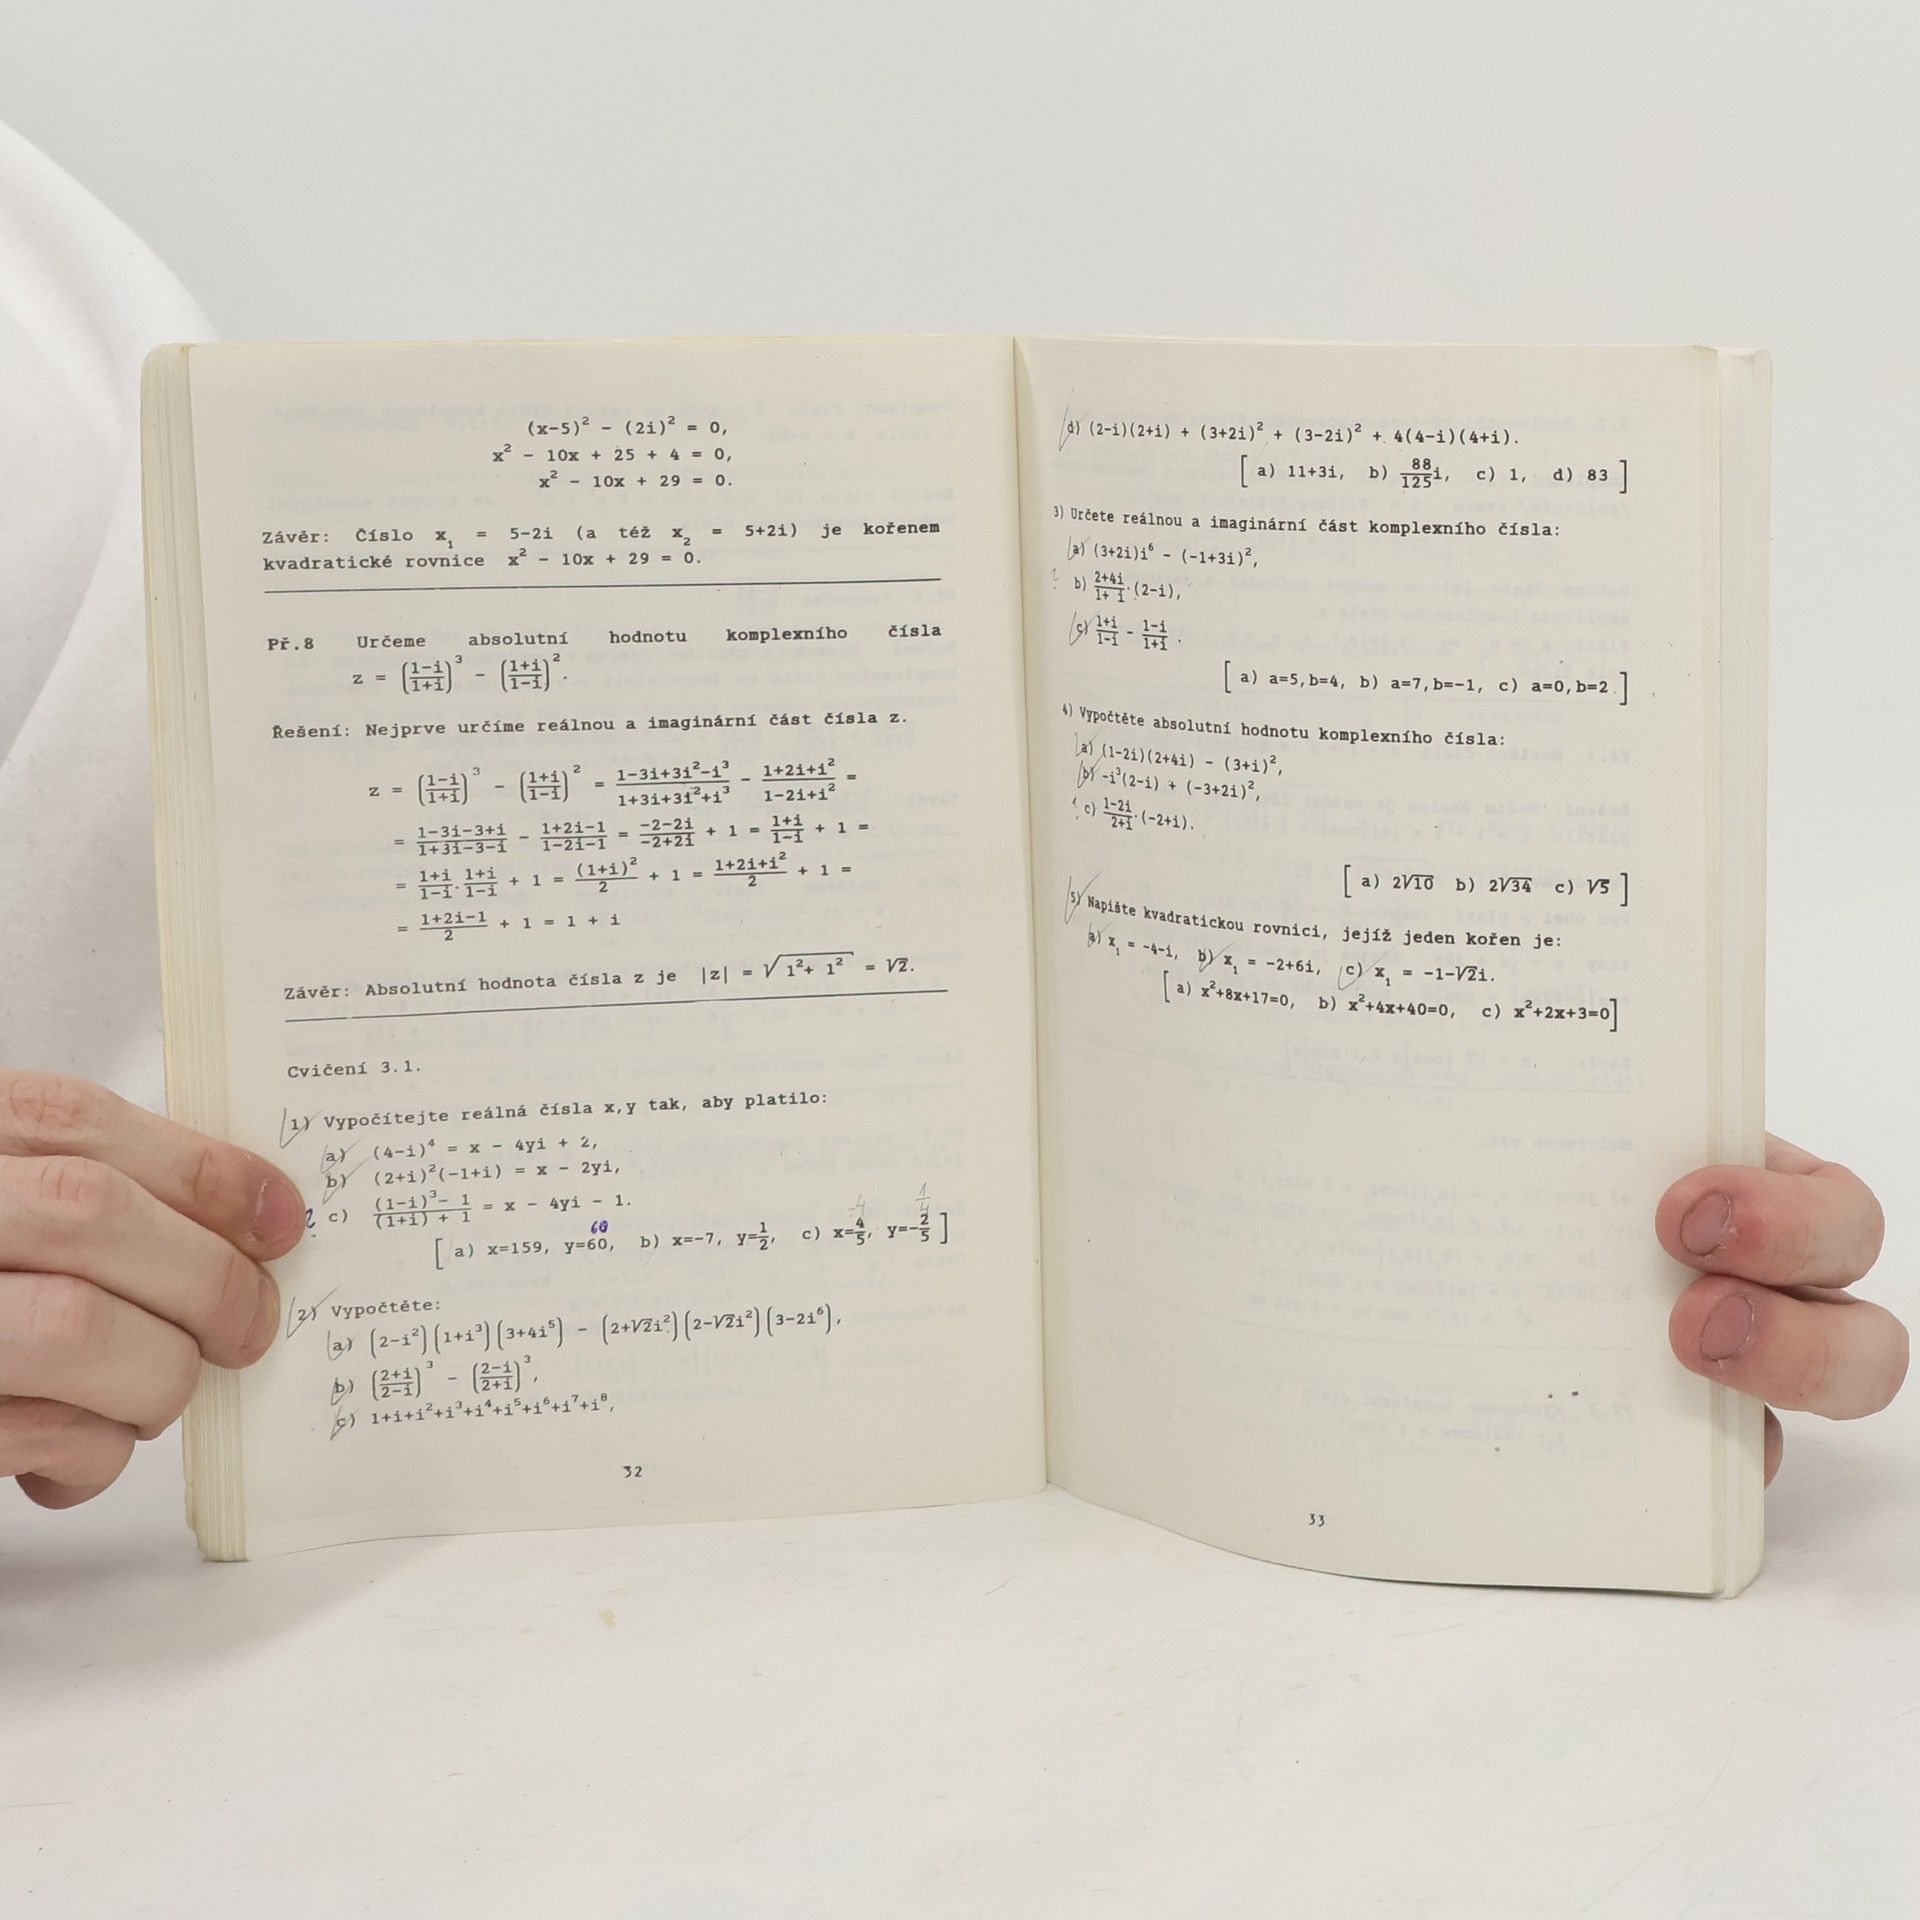 (x-5)² - (2i)² = 0,
x² - 10x + 25 + 4 = 0,
x² - 10x + 29 = 0.
Závěr: Číslo x₁ = 5-2i (a též x₂ = 5+2i) je kořenem
kvadratické rovnice x² - 10x + 29 = 0.
Př.8 Určeme absolutní hodnotu komplexního čísla
z = ((1-i)/(1+i))³ - ((1+i)/(1-i))².
Řešení: Nejprve určíme reálnou a imaginární část čísla z.
z = ((1-i)/(1+i))³ - ((1+i)/(1-i))² = (1-3i+3i²-i³)/(1+3i+3i²+i³) - (1+2i+i²)/(1-2i+i²) =
= (1-3i-3+i)/(1+3i-3-i) - (1+2i-1)/(1-2i-1) = (-2-2i)/(-2+2i) + 1 = (1+i)/(1-i) + 1 =
= (1+i)/(1-i)·(1+i)/(1-i) + 1 = (1+i)²/2 + 1 = (1+2i+i²)/2 + 1 =
= (1+2i-1)/2 + 1 = 1 + i
Závěr: Absolutní hodnota čísla z je |z| = √(1²+ 1²) = √2.
Cvičení 3.1.
1) Vypočítejte reálná čísla x,y tak, aby platilo:
a) (4-i)⁴ = x - 4yi + 2,
b) (2+i)²(-1+i) = x - 2yi,
? c) ((1-i)³- 1)/((1+i) + 1) = x - 4yi - 1.
60
[ a) x=159, y=60, b) x=-7, y=1/2, c) x=4/5, y=-2/5 ]
2) Vypočtěte:
a) (2-i²)(1+i³)(3+4i⁵) - (2+√2i²)(2-√2i²)(3-2i⁶),
b) ((2+i)/(2-i))³ - ((2-i)/(2+i))³,
c) 1+i+i²+i³+i⁴+i⁵+i⁶+i⁷+i⁸,
32
d) (2-i)(2+i) + (3+2i)² + (3-2i)² + 4(4-i)(4+i).
[ a) 11+3i, b) 88/125i, c) 1, d) 83 ]
3) Určete reálnou a imaginární část komplexního čísla:
a) (3+2i)i⁶ - (-1+3i)²,
? b) (2+4i)/(1+ i)·(2-i),
c) (1+i)/(1-i) - (1-i)/(1+i) .
[ a) a=5,b=4, b) a=7,b=-1, c) a=0,b=2 ]
4) Vypočtěte absolutní hodnotu komplexního čísla:
a) (1-2i)(2+4i) - (3+i)²,
b) -i³(2-i) + (-3+2i)²,
c) (1-2i)/(2+i)·(-2+i).
[ a) 2√10 b) 2√34 c) √5 ]
5) Napište kvadratickou rovnici, jejíž jeden kořen je:
a) x₁ = -4-i, b) x₁ = -2+6i, c) x₁ = -1-√2i.
[ a) x²+8x+17=0, b) x²+4x+40=0, c) x²+2x+3=0]
33